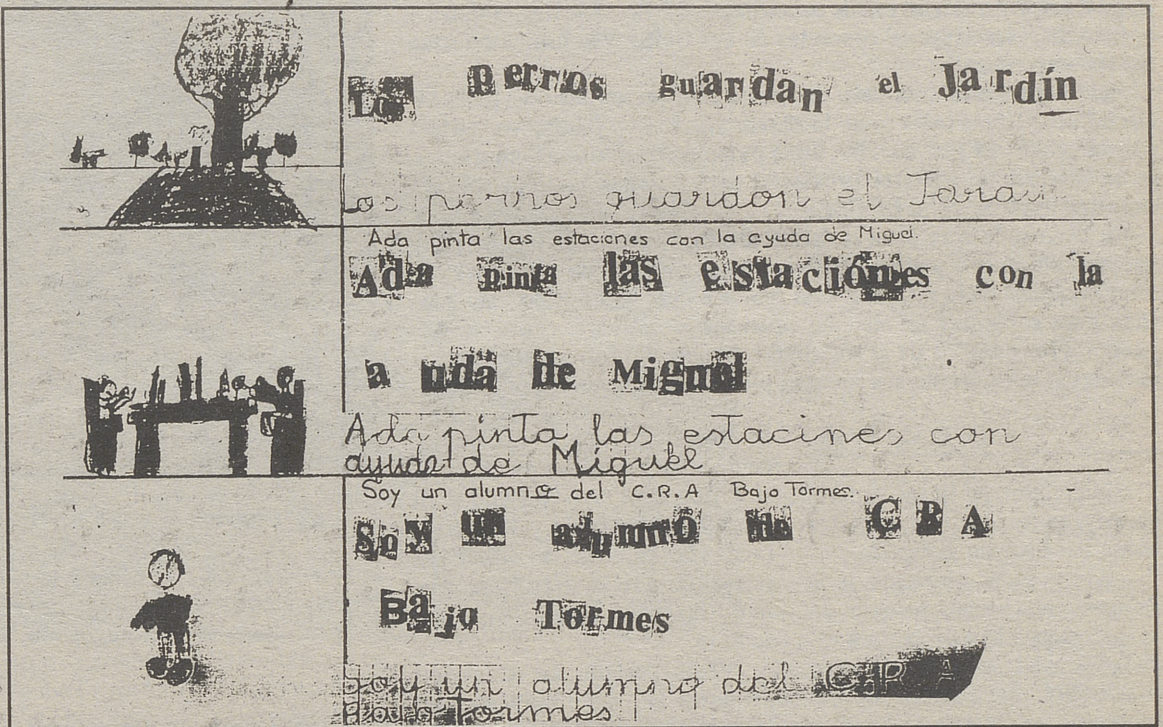 Los perros guardan el Jardín
os perros guardan el
Ada pinta las estaciones con la ayuda de Miguel.
Ada pinta las estaciónes con la
a uda de Miguel
Ada pinta las estacines con
ayuda de Miguel
Soy un alumno del C.R.A Bajo Tormes.
Soy un alumno de C R A
Bajo Tormes
Soy un alumno del C R A
Bajo Tormes